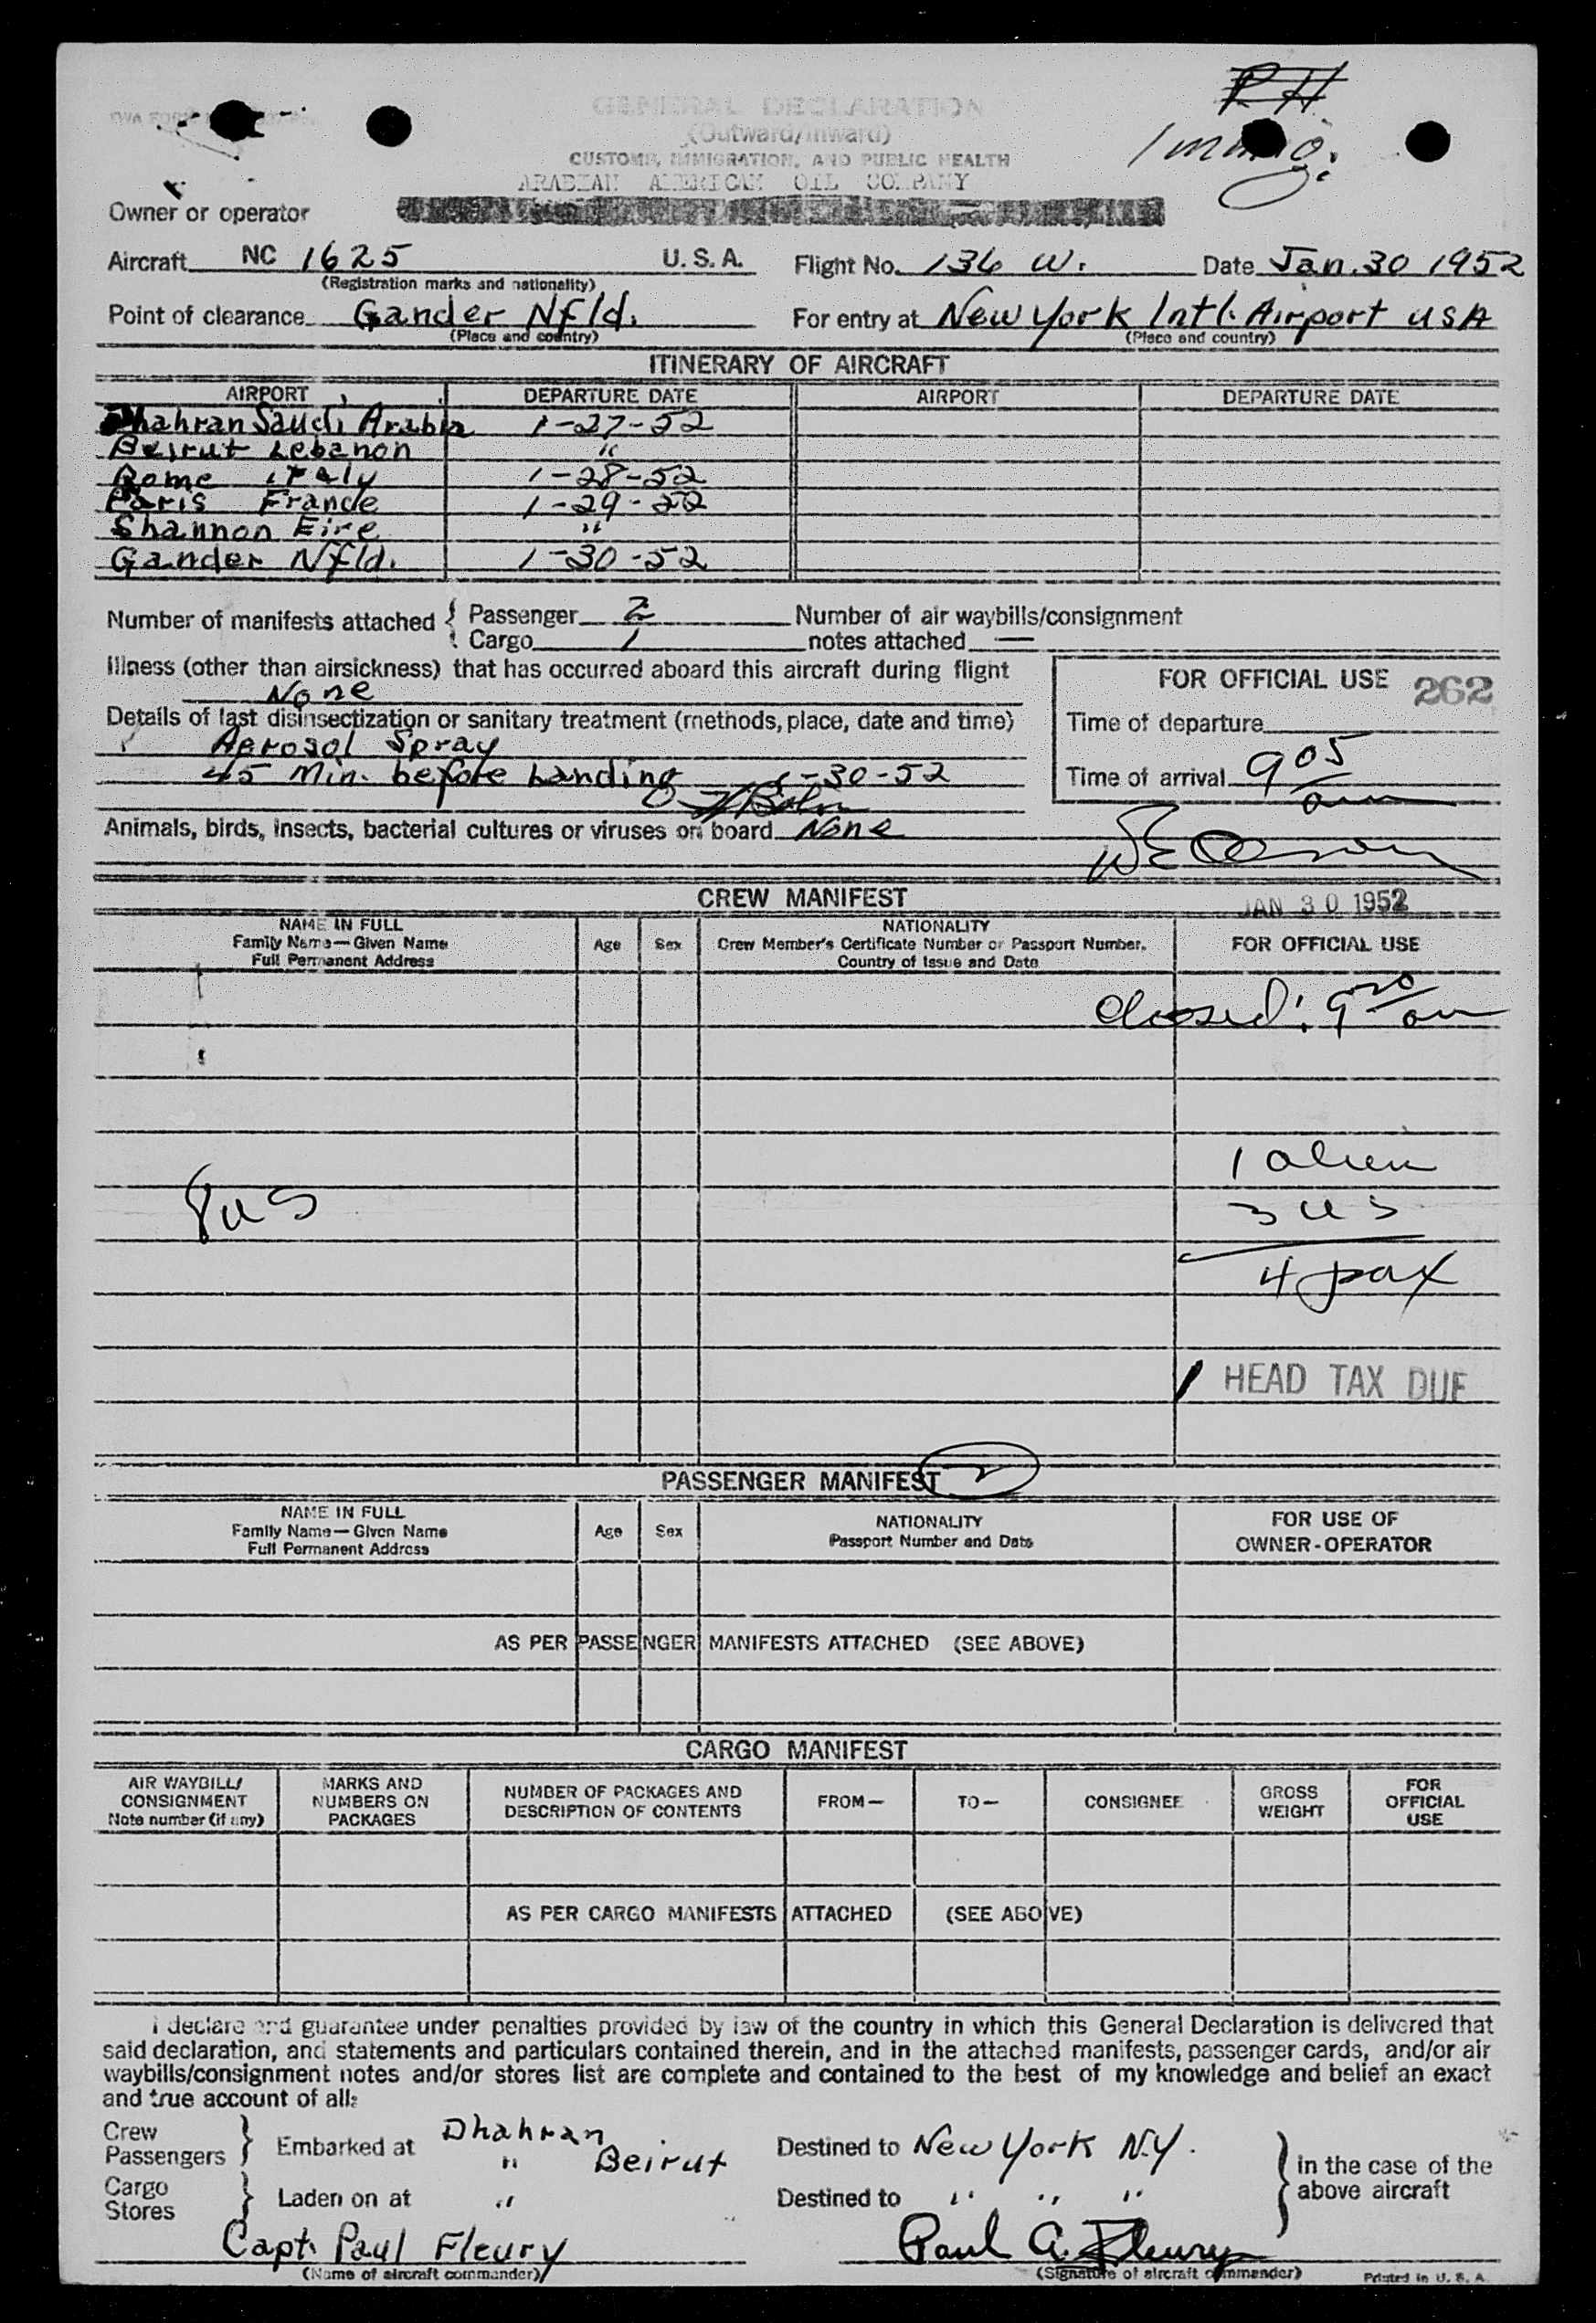 GENERAL DECLARATION
(Outward/Inward)
CUSTOMS, IMMIGRATION, AND PUBLIC HEALTH
ARABIAN AMERICAN OIL COMPANY
Immig.
Owner or operator
Aircraft NC 1625 U. S. A. Flight No. 136 W. Date Jan. 30 1952
(Registration marks and nationality)
Point of clearance Gander Nfld. For entry at New York Intl. Airport USA
(Place and country) (Place and country)
ITINERARY OF AIRCRAFT
AIRPORT DEPARTURE DATE AIRPORT DEPARTURE DATE
Dhahran Saudi Arabia 1-27-52
Beirut Lebanon "
Rome Italy 1-28-52
Paris France 1-29-52
Shannon Eire "
Gander Nfld. 1-30-52
Number of manifests attached { Passenger 2 Number of air waybills/consignment
Cargo 1 notes attached —
Illness (other than airsickness) that has occurred aboard this aircraft during flight
None
FOR OFFICIAL USE 262
Details of last disinsectization or sanitary treatment (methods, place, date and time)
Time of departure
Aerosol Spray
45 Min. before Landing 1-30-52
Time of arrival 905 am
Animals, birds, insects, bacterial cultures or viruses on board None
CREW MANIFEST
JAN 30 1952
NAME IN FULL
Family Name—Given Name
Full Permanent Address
Age Sex
NATIONALITY
Crew Member's Certificate Number or Passport Number,
Country of Issue and Date
FOR OFFICIAL USE
Closed: 920 am
1 alien
8 US 3 US
4 pax
HEAD TAX DUE
PASSENGER MANIFEST 2
NAME IN FULL
Family Name—Given Name
Full Permanent Address
Age Sex
NATIONALITY
Passport Number and Date
FOR USE OF
OWNER-OPERATOR
AS PER PASSENGER MANIFESTS ATTACHED (SEE ABOVE)
CARGO MANIFEST
AIR WAYBILL/
CONSIGNMENT
Note number (if any)
MARKS AND
NUMBERS ON
PACKAGES
NUMBER OF PACKAGES AND
DESCRIPTION OF CONTENTS
FROM— TO— CONSIGNEE
GROSS
WEIGHT
FOR
OFFICIAL
USE
AS PER CARGO MANIFESTS ATTACHED (SEE ABOVE)
I declare and guarantee under penalties provided by law of the country in which this General Declaration is delivered that
said declaration, and statements and particulars contained therein, and in the attached manifests, passenger cards, and/or air
waybills/consignment notes and/or stores list are complete and contained to the best of my knowledge and belief an exact
and true account of all:
Crew
Passengers } Embarked at Dhahran " Beirut Destined to New York N.Y.
In the case of the
above aircraft
Cargo
Stores } Laden on at " Destined to " " "
Capt. Paul Fleury Paul A. Fleury
(Name of aircraft commander) (Signature of aircraft commander) Printed in U. S. A.